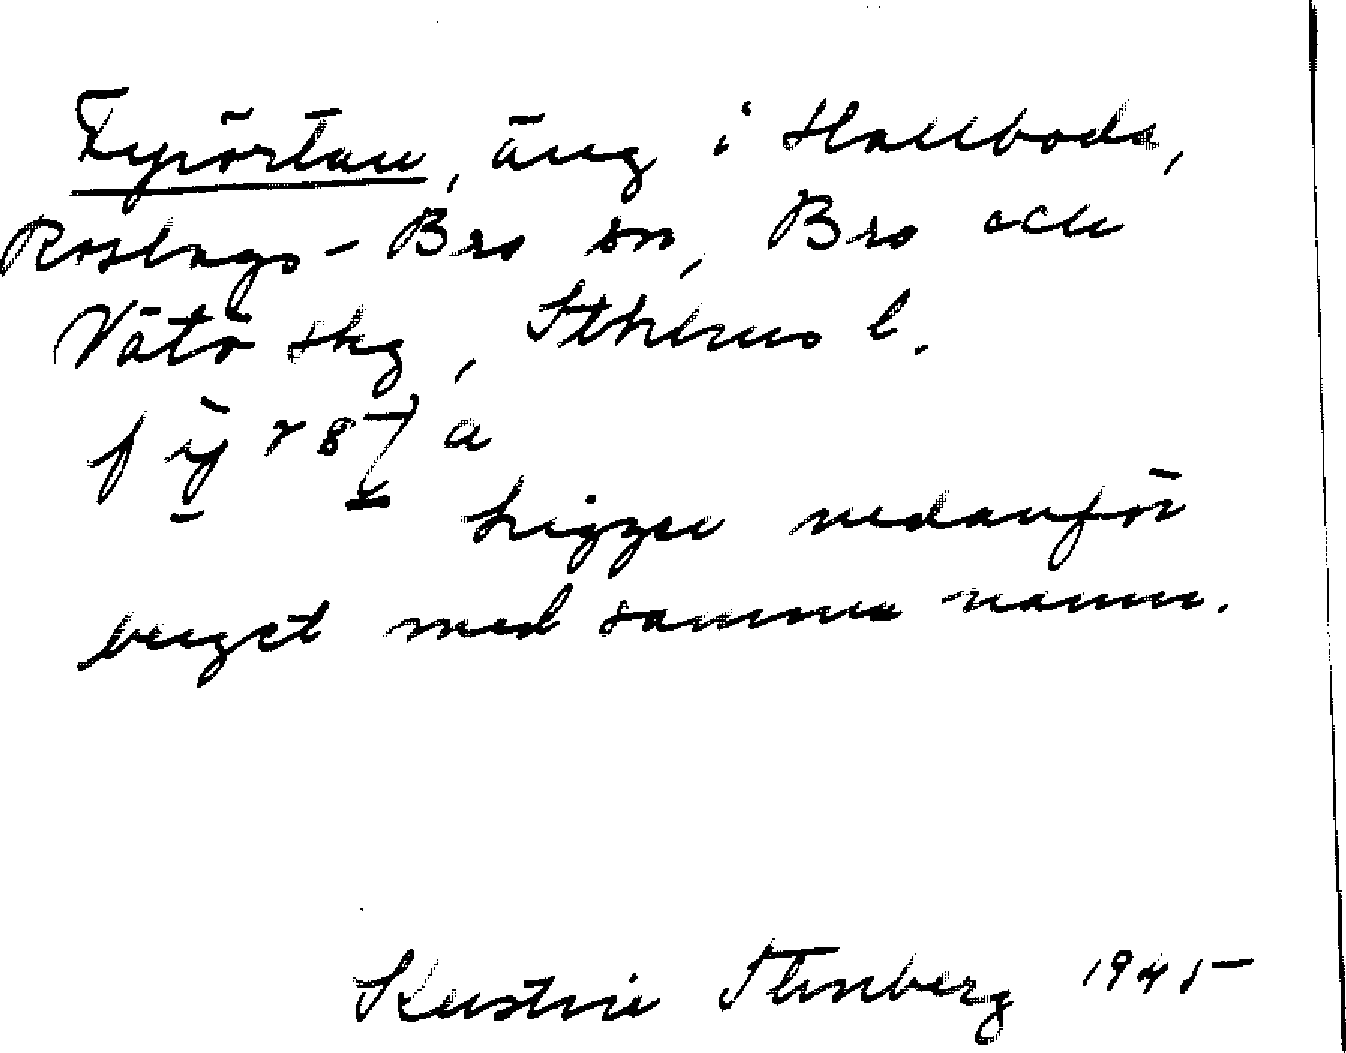 Fyrörtan, äng i Hallboda,
Roslags-Bro sn, Bro och
Vätö skg, Sthlms l.
Ligger nedanför
berget med samma namn.
Kerstin Stenberg 1945